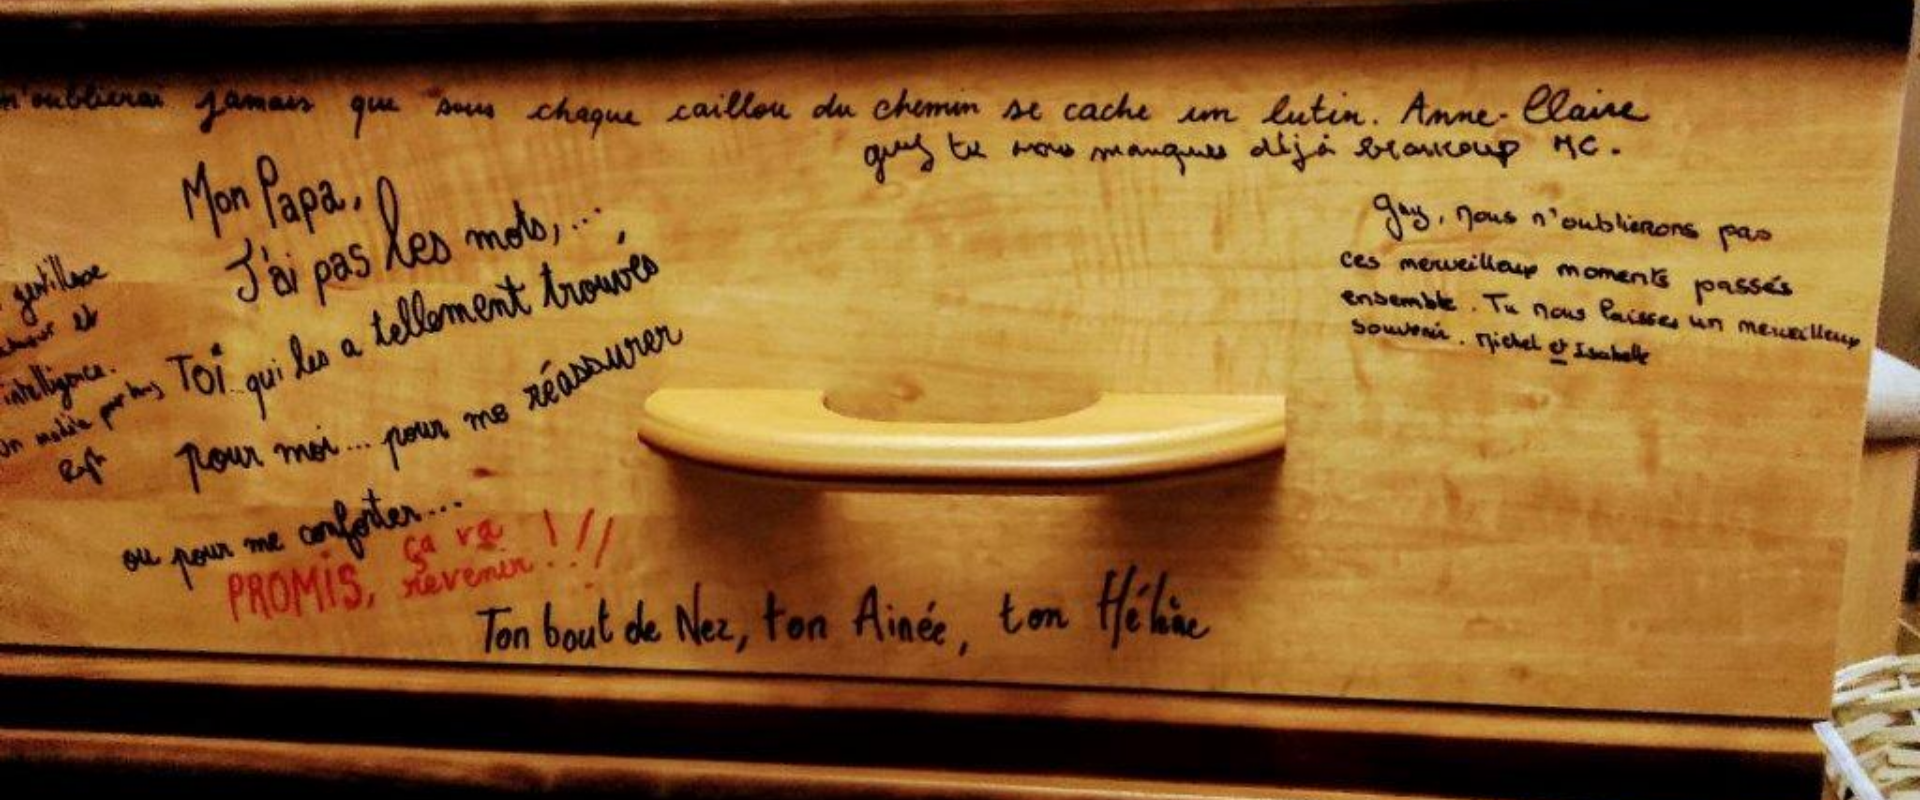 n'oublierai jamais que sous chaque caillou du chemin se cache un lutin. Anne-Claire
guy tu nous manques déjà beaucoup MC.
Mon Papa,
J'ai pas les mots,...,
Toi qui les a tellement trouvés
pour moi... pour me réassurer
ou pour me conforter...
PROMIS, ça va
revenir !!!
Ton bout de Nez, ton Ainée, ton Hélène
Guy, nous n'oublierons pas
ces merveilleux moments passés
ensemble. Tu nous laisses un merveilleux
souvenir. Michel et Isabelle
gentillesse
et
intelligence.
Un modèle pour tous